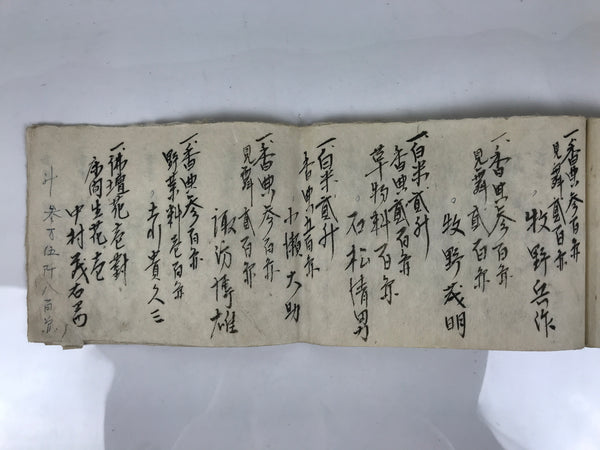 一、香典 参百円
見舞 貳百円
牧野兵作
一、香典 参百円
見舞 貳百円
牧野茂明
一、白米 貳升
香典 貳百円
草物料 百円
石松清男
一、白米 貳升
香典 五百円
小瀬大助
一、香典 参百円
見舞 貳百円
諏訪博雄
一、香典 参百円
野菜料 壱百円
吉川貴久三
一、佛壇花 壱對
床向生花 壱
中村茂右ヱ門
計 参万伍阡八百円